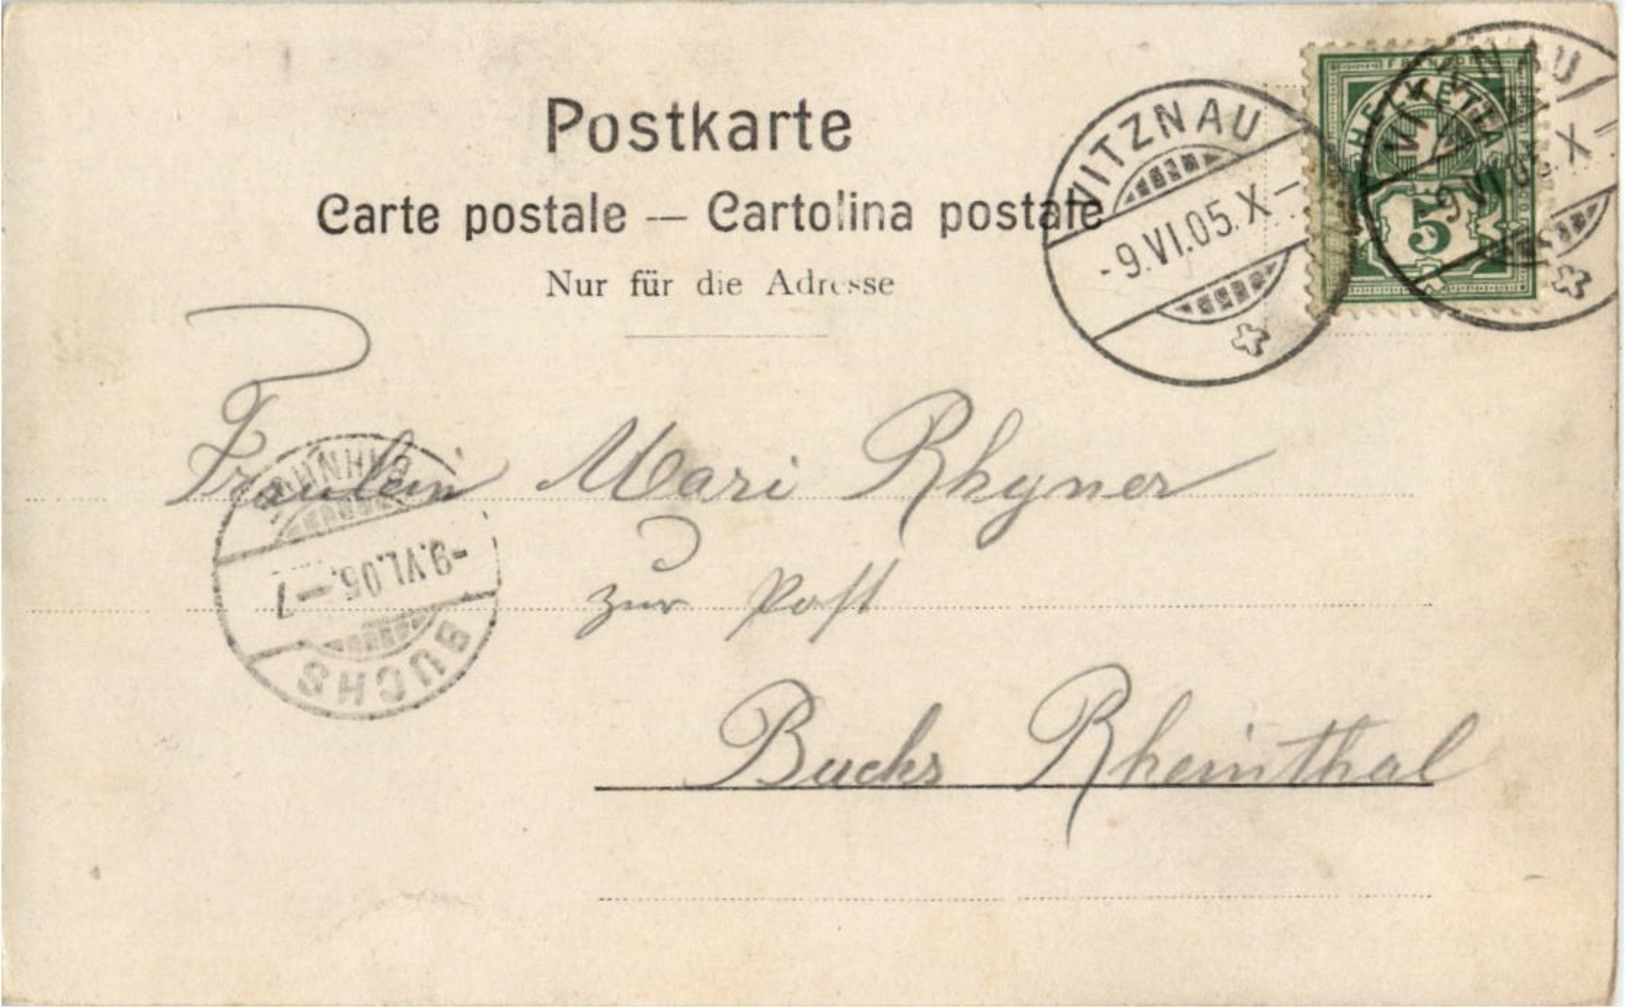 Postkarte
Carte postale — Cartolina postale
Nur für die Adresse
VITZNAU
-9.VI.05.X-
FRANCO
HELVETIA
5
VITZNAU
-9.VI.05.X
Fräulein Mari Rhyner
BAHNHOF
-9.VI.05.-7
BUCHS
zur Post
Buchs Rheinthal